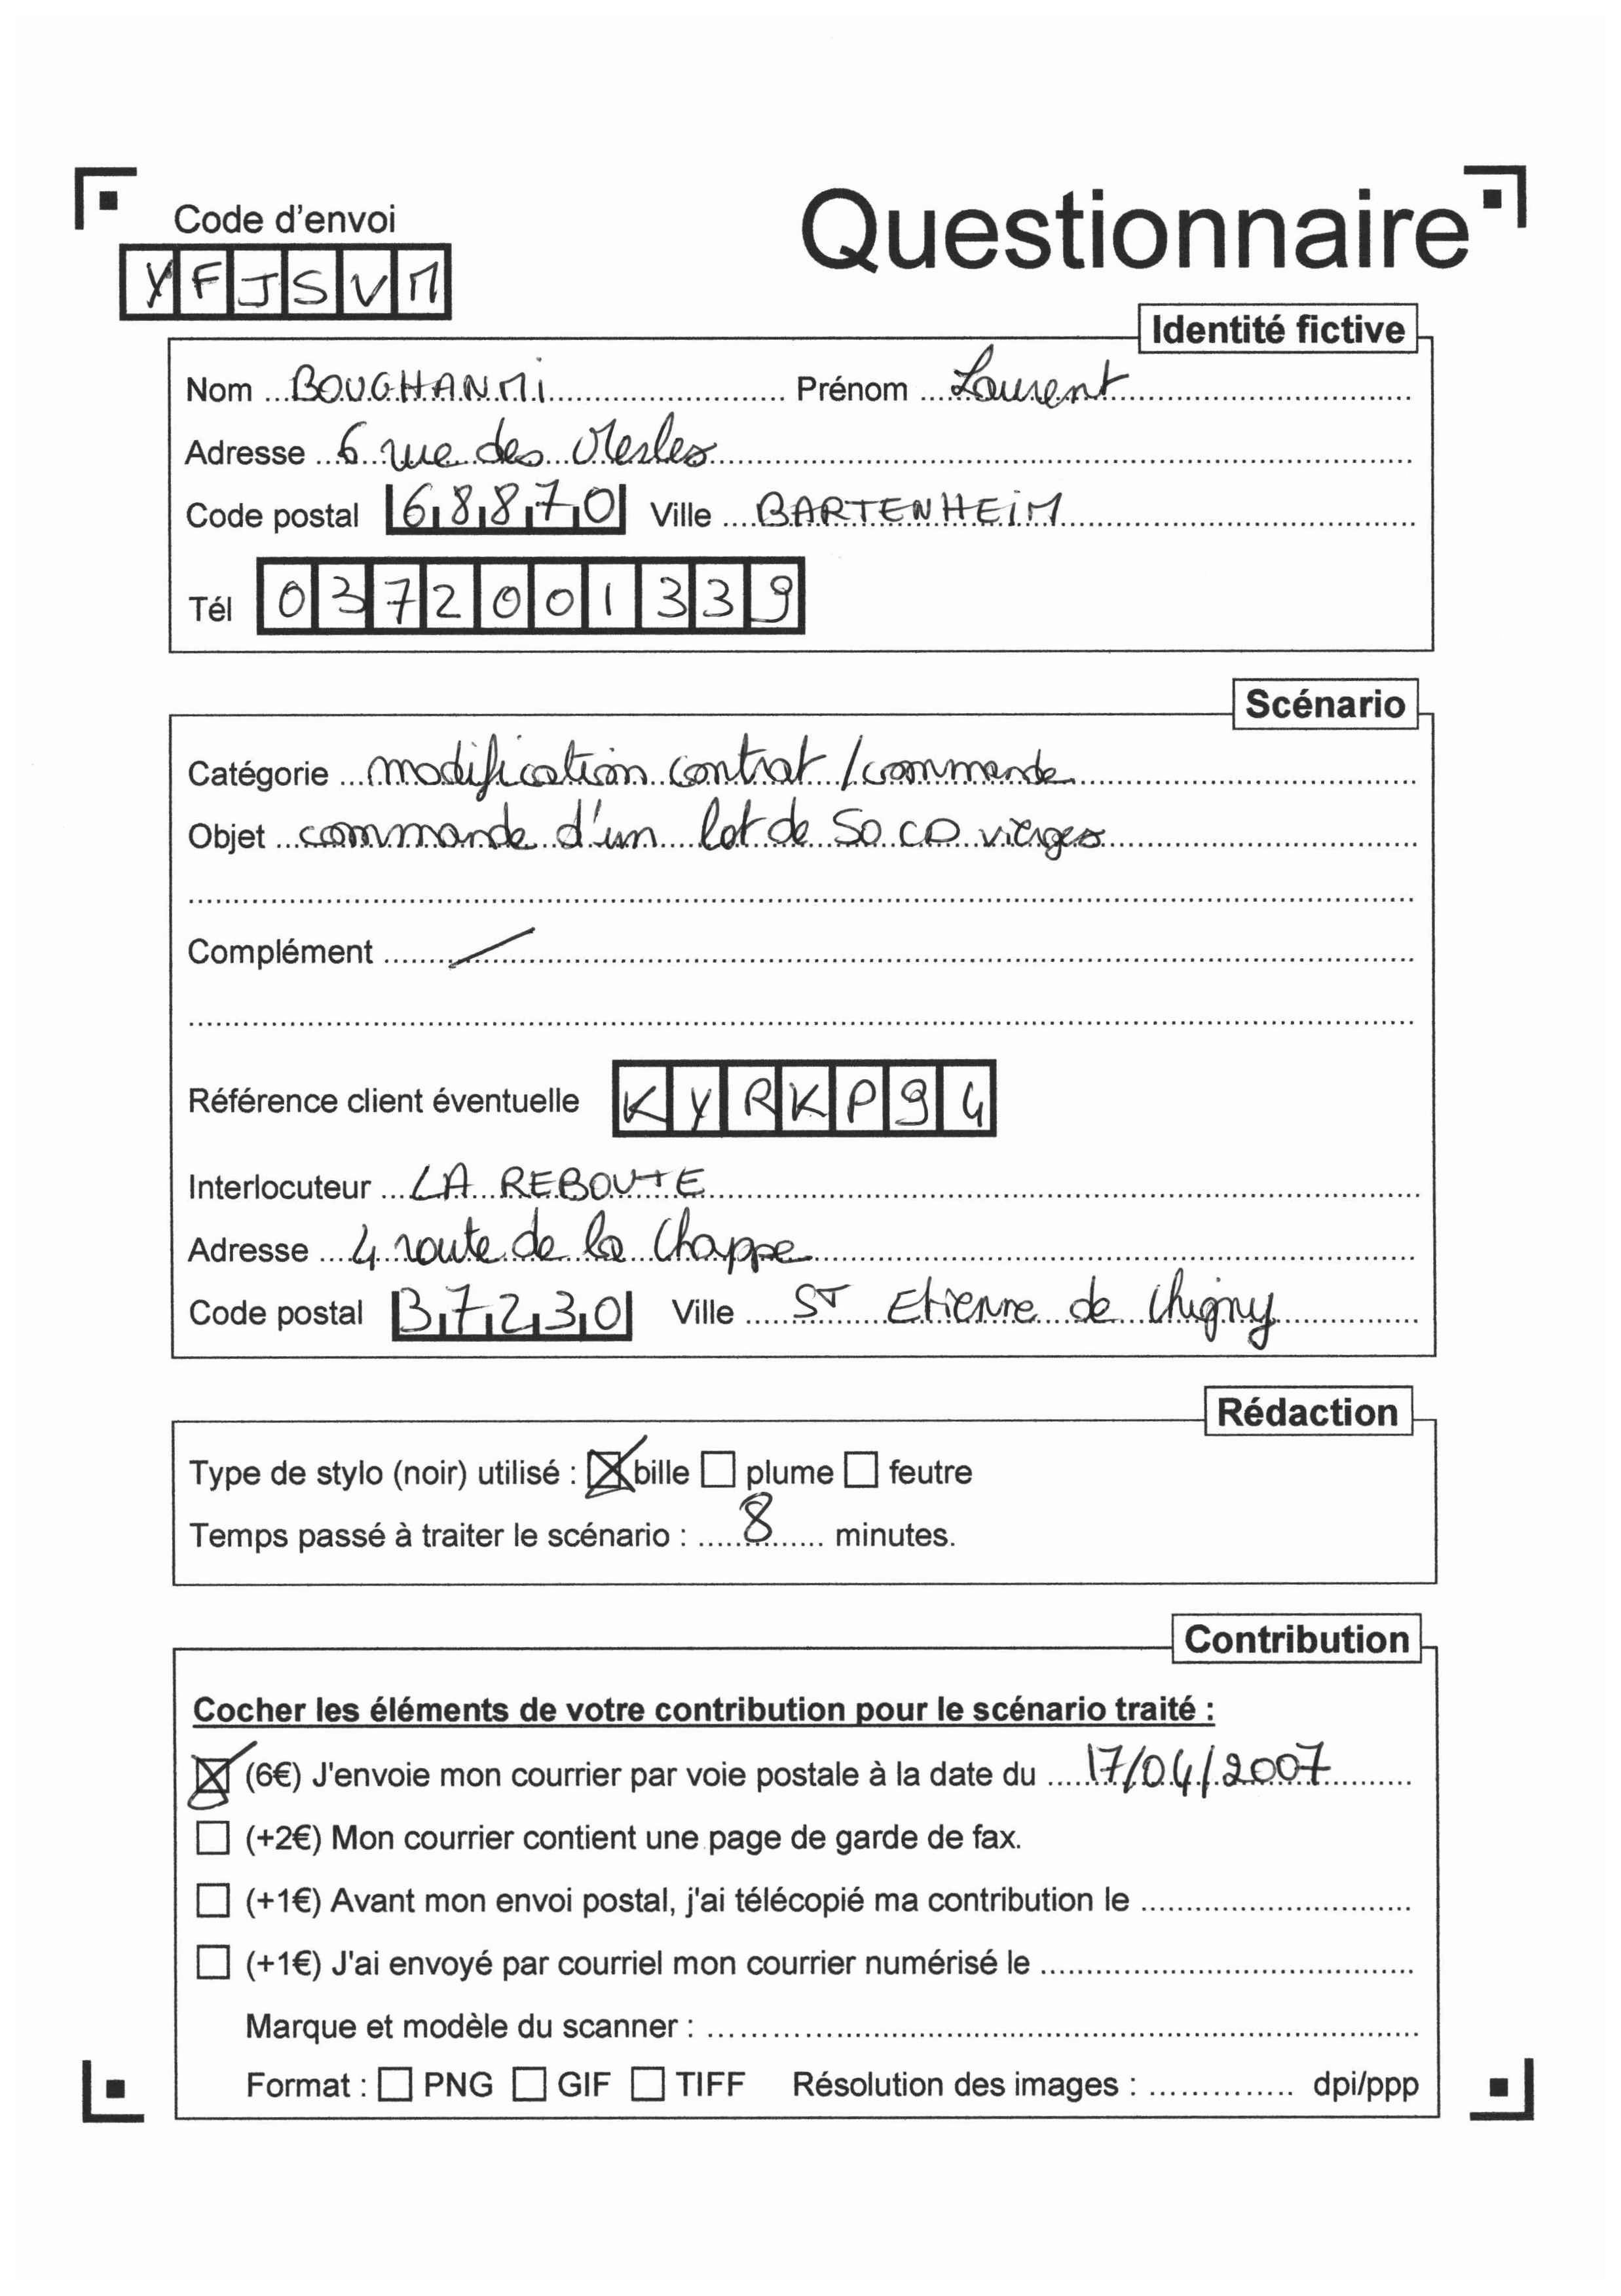 Code d'envoi
Questionnaire
YFJSVM
Identité fictive
Nom BOUGHANMI Prénom Laurent
Adresse 6 rue des Merles
Code postal 68870 Ville BARTENHEIM
Tél 0372001339
Scénario
Catégorie modification contrat / commande
Objet commande d'un lot de 50 CD vierges
Complément /
Référence client éventuelle KYRKP94
Interlocuteur LA REBOUTE
Adresse 4 route de la Chappe
Code postal 37230 Ville ST Etienne de Chigny
Rédaction
Type de stylo (noir) utilisé : ☒ bille ☐ plume ☐ feutre
Temps passé à traiter le scénario : 8 minutes.
Contribution
Cocher les éléments de votre contribution pour le scénario traité :
☒ (6€) J'envoie mon courrier par voie postale à la date du 17/04/2007
☐ (+2€) Mon courrier contient une page de garde de fax.
☐ (+1€) Avant mon envoi postal, j'ai télécopié ma contribution le
☐ (+1€) J'ai envoyé par courriel mon courrier numérisé le
Marque et modèle du scanner :
Format : ☐ PNG ☐ GIF ☐ TIFF Résolution des images : dpi/ppp